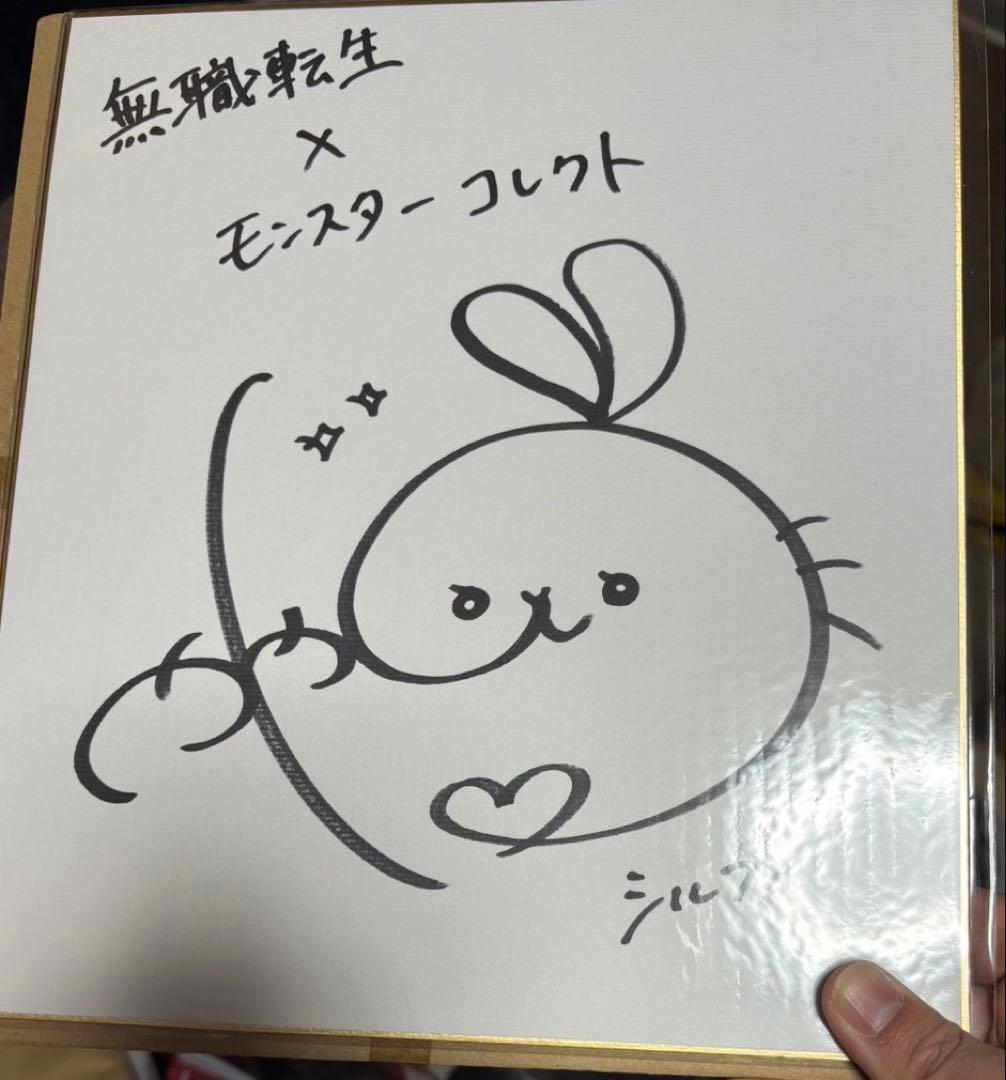 無職転生
×
モンスターコレクト
シルフ